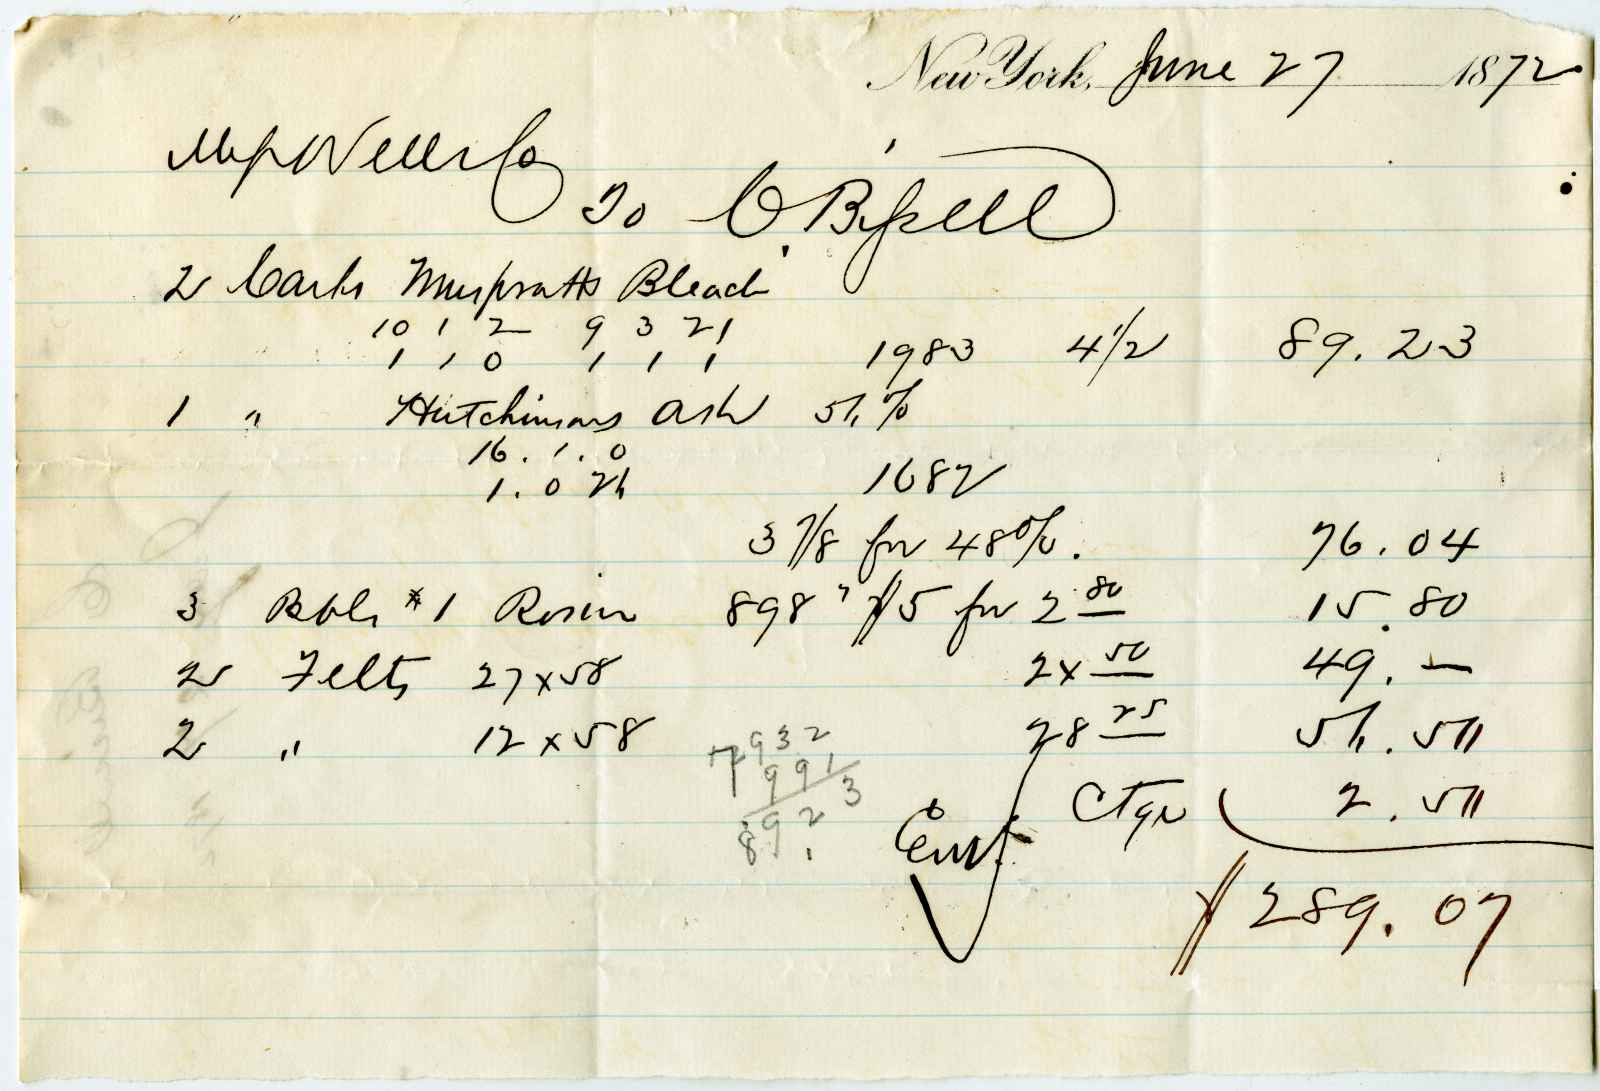 New York, June 27 1872
Wells Co
To C. Bissell
2 Casks Muspratts Bleach
10 1 2 9 3 21
1 1 0 1 1 1 1983 4 1/2 89.23
1 " Hutchinsons Ash 56%
16.1.0
1.0 26 1682
3 7/8 for 48%. 76.04
3 Bbls #1 Rosin 898 " $5 for 2 80 15.80
2 Felts 27 x 58 24 50 49.—
2 " 12 x 58 28 25 56.50
7932
991
8923
Ctge 2.50
$289.07